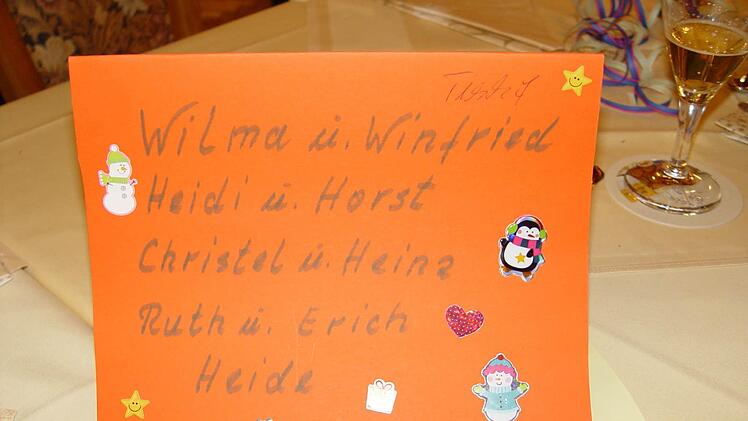 Wilma u. Winfried
Heidi u. Horst
Christel u. Heinz
Ruth u. Erich
Heide